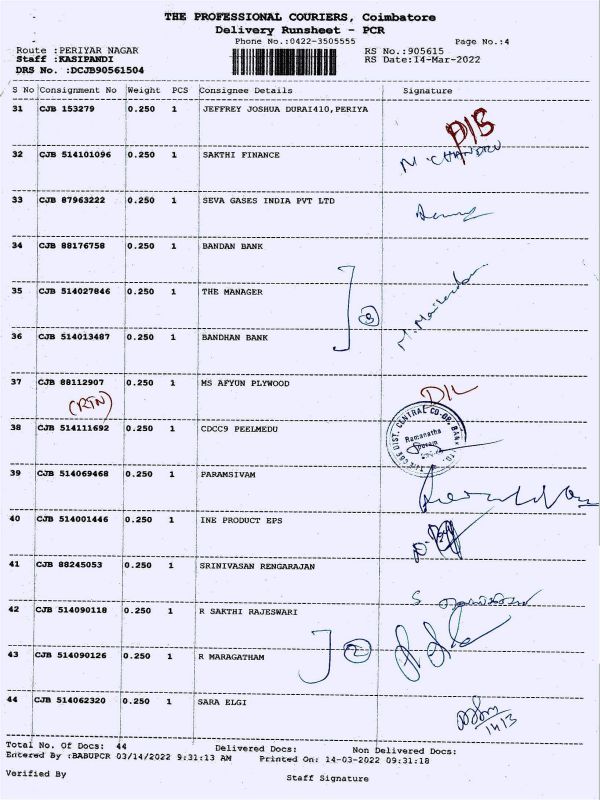 THE PROFESSIONAL COURIERS, Coimbatore
Delivery Runsheet - PCR
Phone No.:0422-3505555 Page No.:4
Route :PERIYAR NAGAR RS No.:905615
Staff :KASIPANDI RS Date:14-Mar-2022
DRS No. :DCJB90561504
S No Consignment No Weight PCS Consignee Details Signature
31 CJB 153279 0.250 1 JEFFREY JOSHUA DURAI410,PERIYA
32 CJB 514101096 0.250 1 SAKTHI FINANCE N. CHANDRU
33 CJB 87963222 0.250 1 SEVA GASES INDIA PVT LTD
34 CJB 88176758 0.250 1 BANDAN BANK
35 CJB 514027846 0.250 1 THE MANAGER 3
36 CJB 514013487 0.250 1 BANDHAN BANK
37 CJB 88112907 0.250 1 MS AFYUN PLYWOOD D/L
(RTN)
38 CJB 514111692 0.250 1 CDCC9 PEELMEDU
DIST. CENTRAL CO-OP. BANK
Ramanatha
39 CJB 514069468 0.250 1 PARAMSIVAM
40 CJB 514001446 0.250 1 INE PRODUCT EPS
41 CJB 88245053 0.250 1 SRINIVASAN RENGARAJAN
42 CJB 514090118 0.250 1 R SAKTHI RAJESWARI
2
43 CJB 514090126 0.250 1 R MARAGATHAM
44 CJB 514062320 0.250 1 SARA ELGI
14/3
Total No. Of Docs: 44 Delivered Docs: Non Delivered Docs:
Entered By :BABUPCR 03/14/2022 9:31:13 AM Printed On: 14-03-2022 09:31:18
Verified By Staff Signature